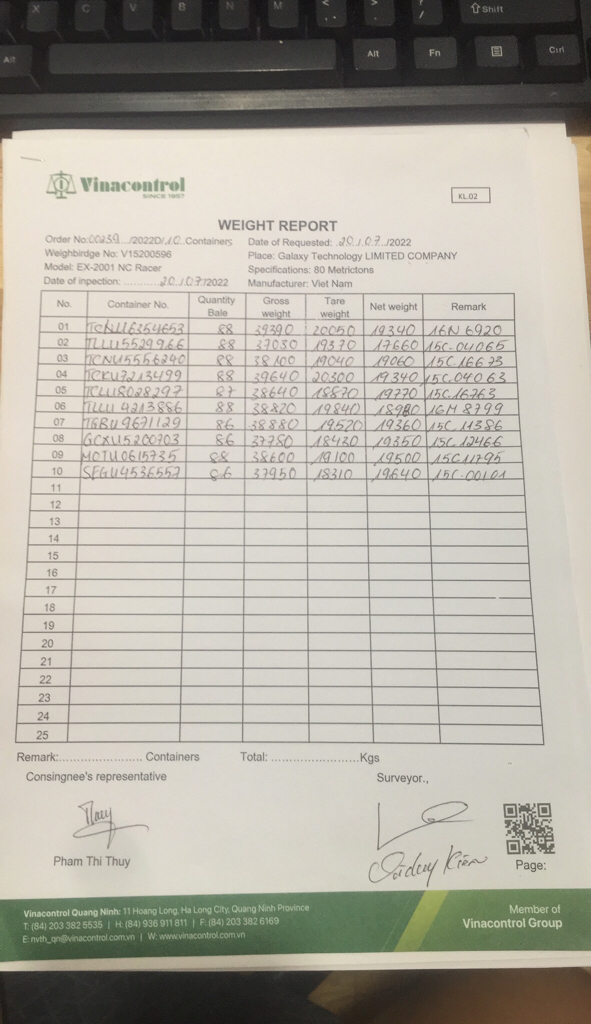 X C V B N M < > ? / ⇧ Shift
Alt Alt Fn Ctrl
Vinacontrol
SINCE 1957
KL.02
WEIGHT REPORT
Order No:00239 /2022D/10 Containers Date of Requested: 20/07/2022
Weighbirdge No: V15200596 Place: Galaxy Technology LIMITED COMPANY
Model: EX-2001 NC Racer Specifications: 80 Metrictons
Date of inpection: ............20/07/2022 Manufacturer: Viet Nam
No. Container No. Quantity Bale Gross weight Tare weight Net weight Remark
01 88 39390 20050 19340 16N 6920
02 TLLU5529966 88 37030 19370 17660 15C-04065
03 TCNU5556240 88 38100 19040 19060 15C 16673
04 TCKU7213499 88 39640 20300 19340 15C.04063
05 TCLU8028297 87 38640 18870 19770 15C.16763
06 TLLU 4213886 88 38820 19840 18980 16M 8799
07 TGBU9671129 86 38880 19520 19360 15C.11386
08 GCXU5200703 86 37780 18430 19350 15C 12466
09 MOTU0615735 88 38600 19100 19500 15C11795
10 SEGU4536557 86 37950 18310 19640 15C-00101
11
12
13
14
15
16
17
18
19
20
21
22
23
24
25
Remark:........................ Containers Total: .........................Kgs
Consingnee's representative Surveyor.,
Pham Thi Thuy
Page:
Vinacontrol Quang Ninh: 11 Hoang Long, Ha Long City, Quang Ninh Province
T: (84) 203 382 5535 | H: (84) 936 911 811 | F: (84) 203 382 6169
E: nvth_qn@vinacontrol.com.vn | W: www.vinacontrol.com.vn
Member of
Vinacontrol Group